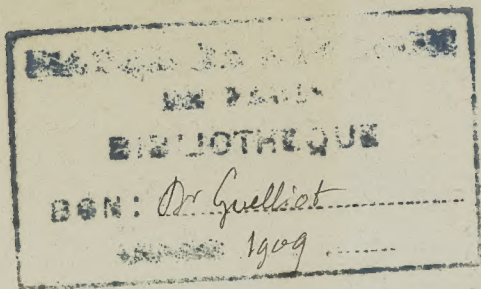 DE PARIS
BIBLIOTHEQUE
DON: Dr Guelliot
1909